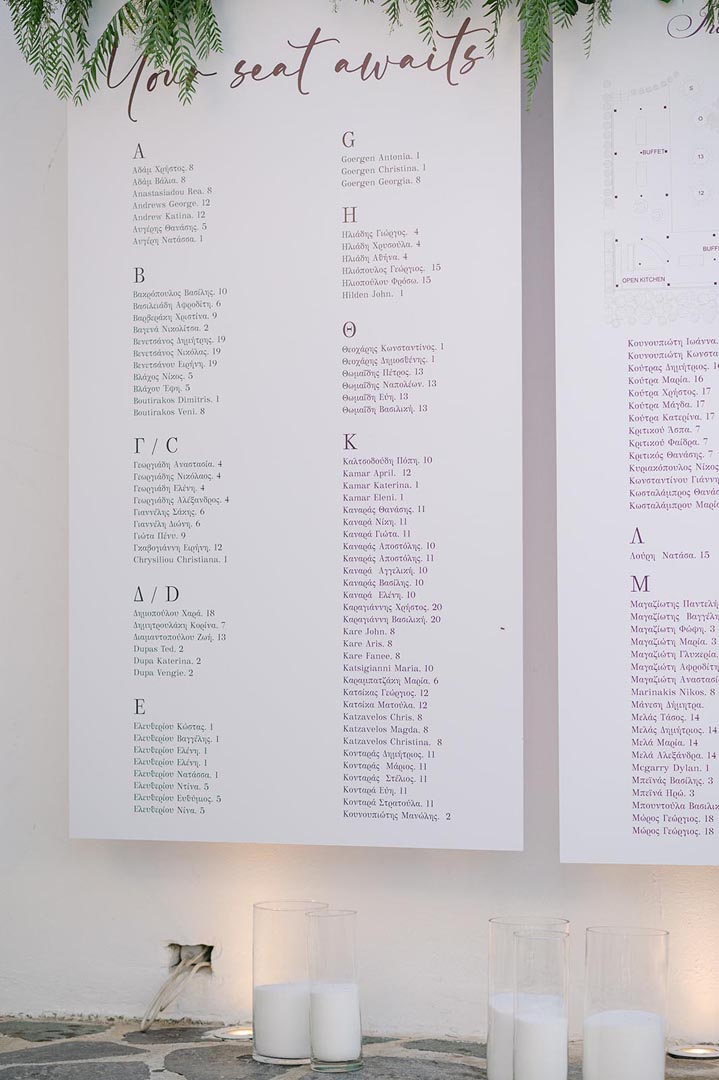 Your seat awaits
A
Αδάμ Χρήστος. 8
Αδάμ Βάλια. 8
Anastasiadou Rea. 8
Andrews George. 12
Andrew Katina. 12
Αυγέρης Θανάσης. 5
Αυγέρη Νατάσσα. 1
B
Βακρόπουλος Βασίλης. 10
Βασιλειάδη Αφροδίτη. 6
Βαρβεράκη Χριστίνα. 9
Βαγενά Νικολίτσα. 2
Βενετσάνος Δημήτρης. 19
Βενετσάνος Νικόλας. 19
Βενετσάνου Ειρήνη. 19
Βλάχος Νίκος. 5
Βλάχου Έφη. 5
Boutirakos Dimitris. 1
Boutirakos Veni. 8
Γ / C
Γεωργιάδη Αναστασία. 4
Γεωργιάδης Νικόλαος. 4
Γεωργιάδη Ελένη. 4
Γεωργιάδης Αλέξανδρος. 4
Γιαννέλης Σάκης. 6
Γιαννέλη Διώνη. 6
Γιώτα Πένυ. 9
Γκαβογιάννη Ειρήνη. 12
Chrysiliou Christiana. 1
Δ / D
Δημοπούλου Χαρά. 18
Δημητρουλάκη Κορίνα. 7
Διαμαντοπούλου Ζωή. 13
Dupas Ted. 2
Dupa Katerina. 2
Dupa Vengie. 2
E
Ελευθερίου Κώστας. 1
Ελευθερίου Βαγγέλης. 1
Ελευθερίου Ελένη. 1
Ελευθερίου Ελένη. 1
Ελευθερίου Νατάσσα. 1
Ελευθερίου Ντίνα. 5
Ελευθερίου Ευθύμιος. 5
Ελευθερίου Νίνα. 5
G
Goergen Antonia. 1
Goergen Christina. 1
Goergen Georgia. 8
H
Ηλιάδης Γιώργος. 4
Ηλιάδη Χρυσούλα. 4
Ηλιάδη Αθήνα. 4
Ηλιόπουλος Γεώργιος. 15
Ηλιοπούλου Φρόσω. 15
Hilden John. 1
Θ
Θεοχάρης Κωνσταντίνος. 1
Θεοχάρης Δημοσθένης. 1
Θωμαΐδης Πέτρος. 13
Θωμαΐδης Ναπολέων. 13
Θωμαΐδη Εύη. 13
Θωμαΐδη Βασιλική. 13
K
Καλτσοδούδη Πόπη. 10
Kamar April. 12
Kamar Katerina. 1
Kamar Eleni. 1
Καναράς Θανάσης. 11
Καναρά Νίκη. 11
Καναρά Γιώτα. 11
Καναράς Αποστόλης. 10
Καναράς Αποστόλης. 10
Καναρά Αγγελική. 10
Καναράς Βασίλης. 10
Καναρά Ελένη. 10
Καραγιάννης Χρήστος. 20
Καραγιάννη Βασιλική. 20
Kare John. 8
Kare Aris. 8
Kare Fanee. 8
Katsigianni Maria. 10
Καραμπατζάκη Μαρία. 6
Κατσίκας Γεώργιος. 12
Κατσίκα Ματούλα. 12
Katzavelos Chris. 8
Katzavelos Magda. 8
Katzavelos Christina. 8
Κονταράς Δημήτριος. 11
Κονταράς Μάριος. 11
Κονταράς Στέλιος. 11
Κονταρά Εύη. 11
Κονταρά Στρατούλα. 11
Κουνουπιώτης Μανώλης. 2
S
O
BUFFET
13
12
OPEN KITCHEN
Κουνουπιώτη Ιωάννα.
Κουνουπιώτη
Κούτρας Δημήτριος.
Κούτρα Μαρία. 16
Κούτρα Χρήστος. 17
Κούτρα Μάγδα. 17
Κούτρα Κατερίνα. 17
Κριτικού Άσπα. 7
Κριτικού Φαίδρα. 7
Κριτικός Θανάσης. 7
Κυριακόπουλος
Κωνσταντίνου
Κωσταλάμπρος
Κωσταλάμπρου
Λ
Λούρη Νατάσα. 15
M
Μαγαζιώτης
Μαγαζιώτης
Μαγαζιώτη Φώφη. 3
Μαγαζιώτη Μαρία. 3
Μαγαζιώτη Γλυκερία.
Μαγαζιώτη
Μαγαζιώτη
Marinakis Nikos. 8
Μάνεση Δήμητρα.
Μελάς Τάσος. 14
Μελάς Δημήτριος. 14
Μελά Μαρία. 14
Μελά Αλεξάνδρα. 14
Mcgarry Dylan. 1
Μπεϊνάς Βασίλης. 3
Μπεϊνά Ηρώ. 3
Μπουντούλα
Μώρος Γεώργιος. 18
Μώρος Γεώργιος. 18